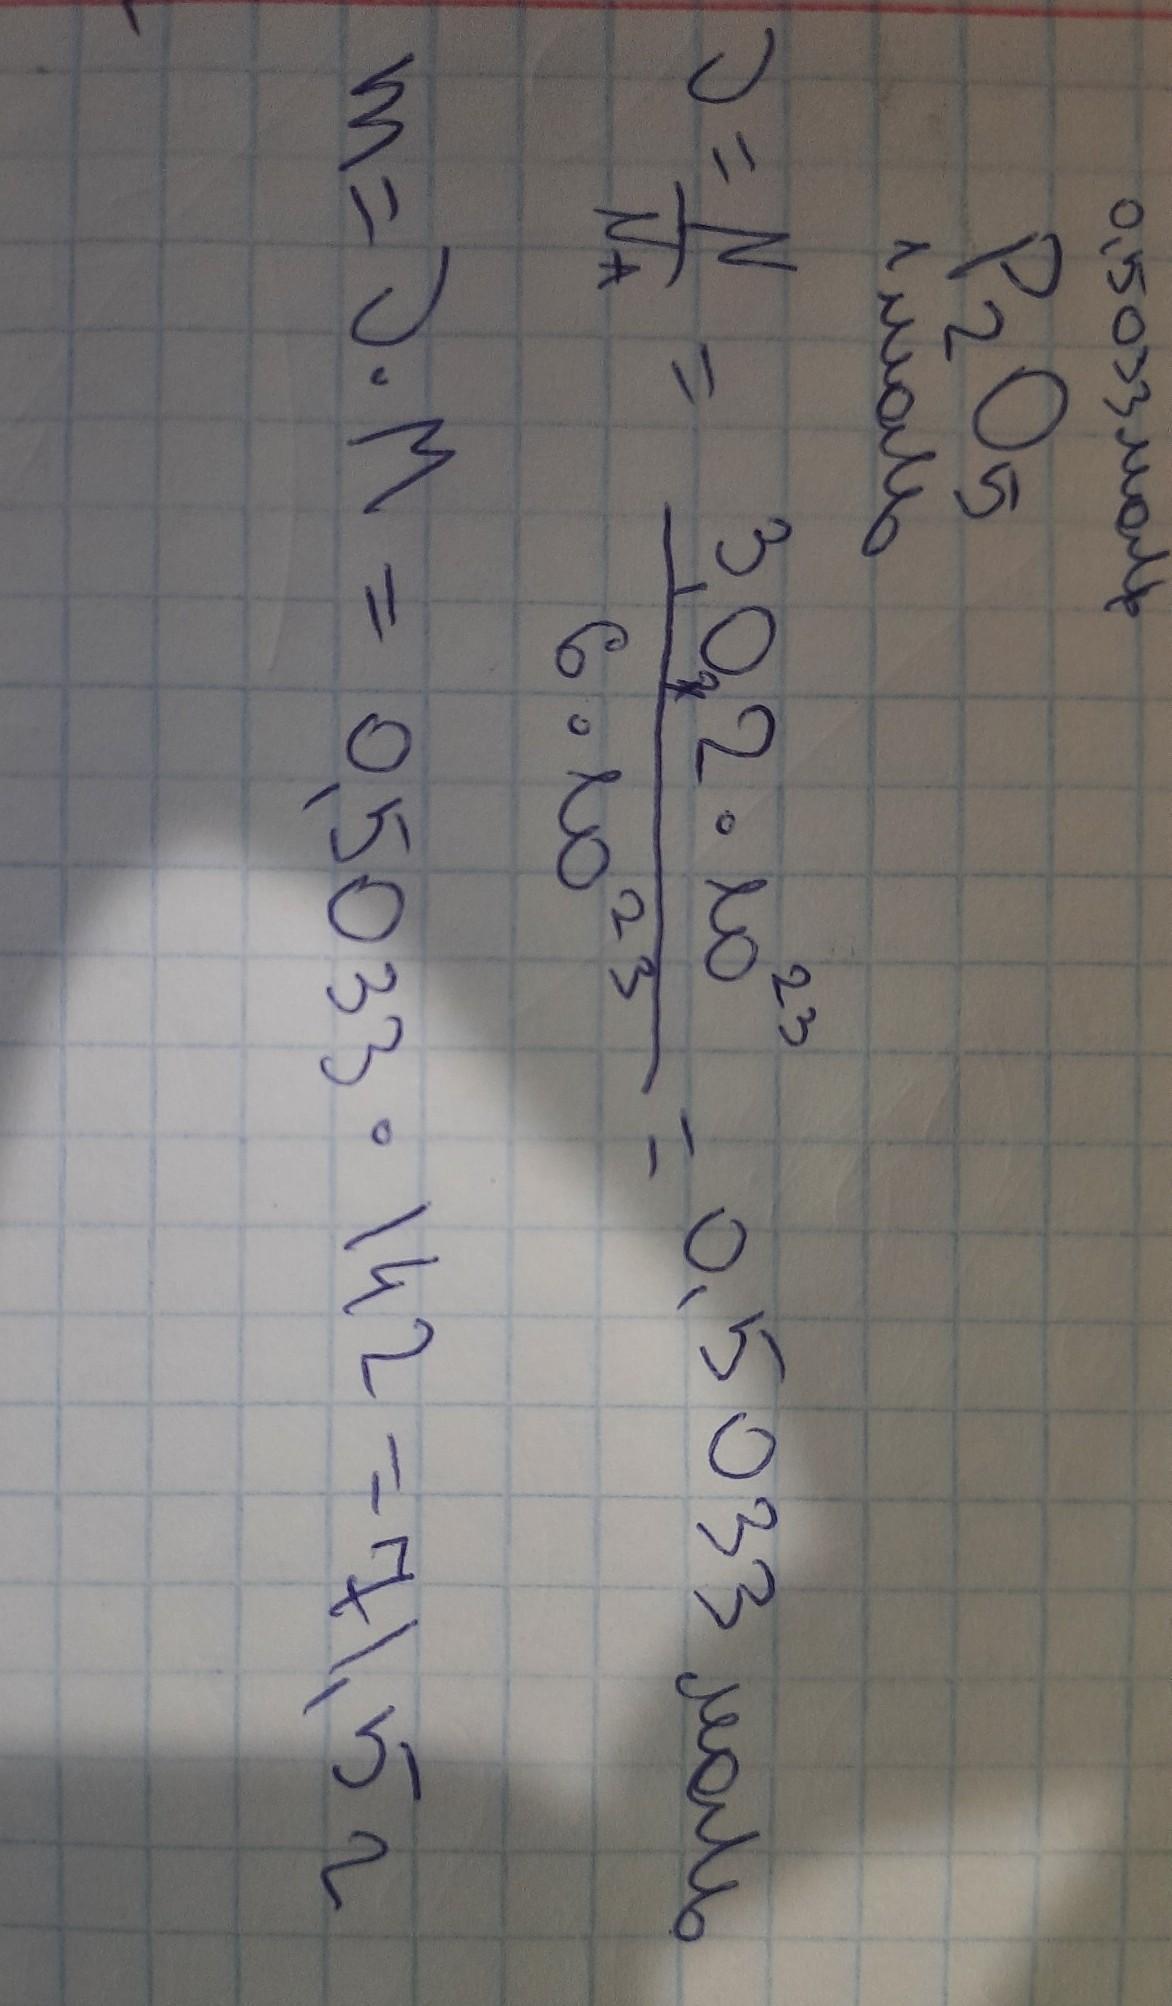 0,5033 моль
P₂O₅
1 моль
ν = N/Nᴀ = 3,02 · 10²³ / 6 · 10²³ = 0,5033 моль
m = ν · M = 0,5033 · 142 = 71,5 г